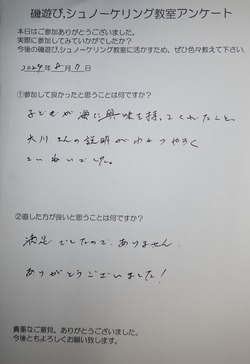 磯遊び,シュノーケリング教室アンケート
本日はご参加ありがとうございました。
実際に参加してみていかがでしたか?
今後の磯遊び,シュノーケリング教室に活かすため、ぜひ色々教えて下さい。
2024年8月7日
①参加して良かったと思うことは何ですか?
子どもが海に興味を持ってくれたこと。
大川さんの説明がわかりやすく
ていねいでした。
②直した方が良いと思うことは何ですか?
満足でしたので、ありません。
ありがとうございました!
貴重なご意見、ありがとうございました。
今後ともよろしくお願い致します。